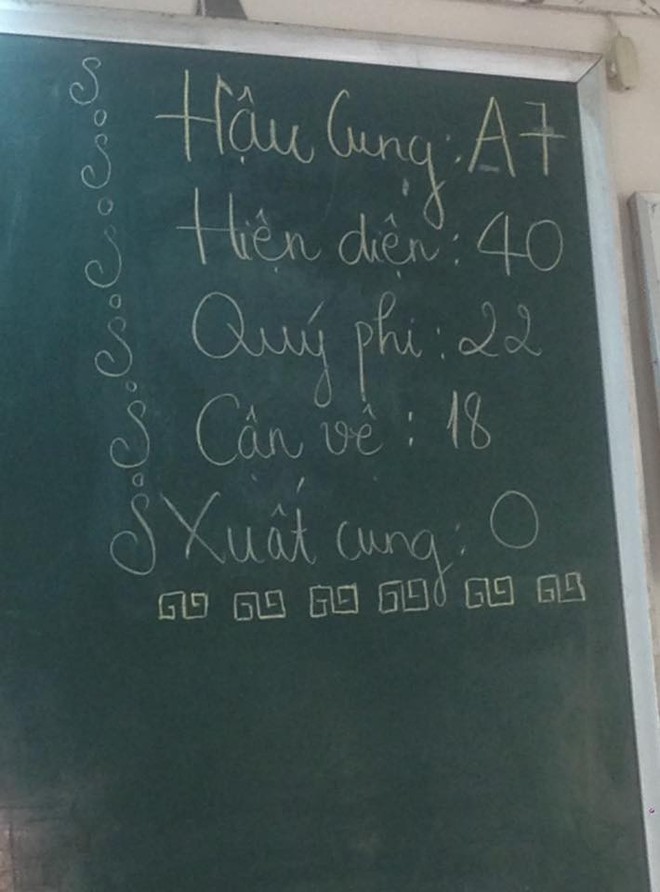 Hậu Cung: A7
Hiện diện: 40
Quý phi: 22
Cận vệ: 18
Xuất cung: 0